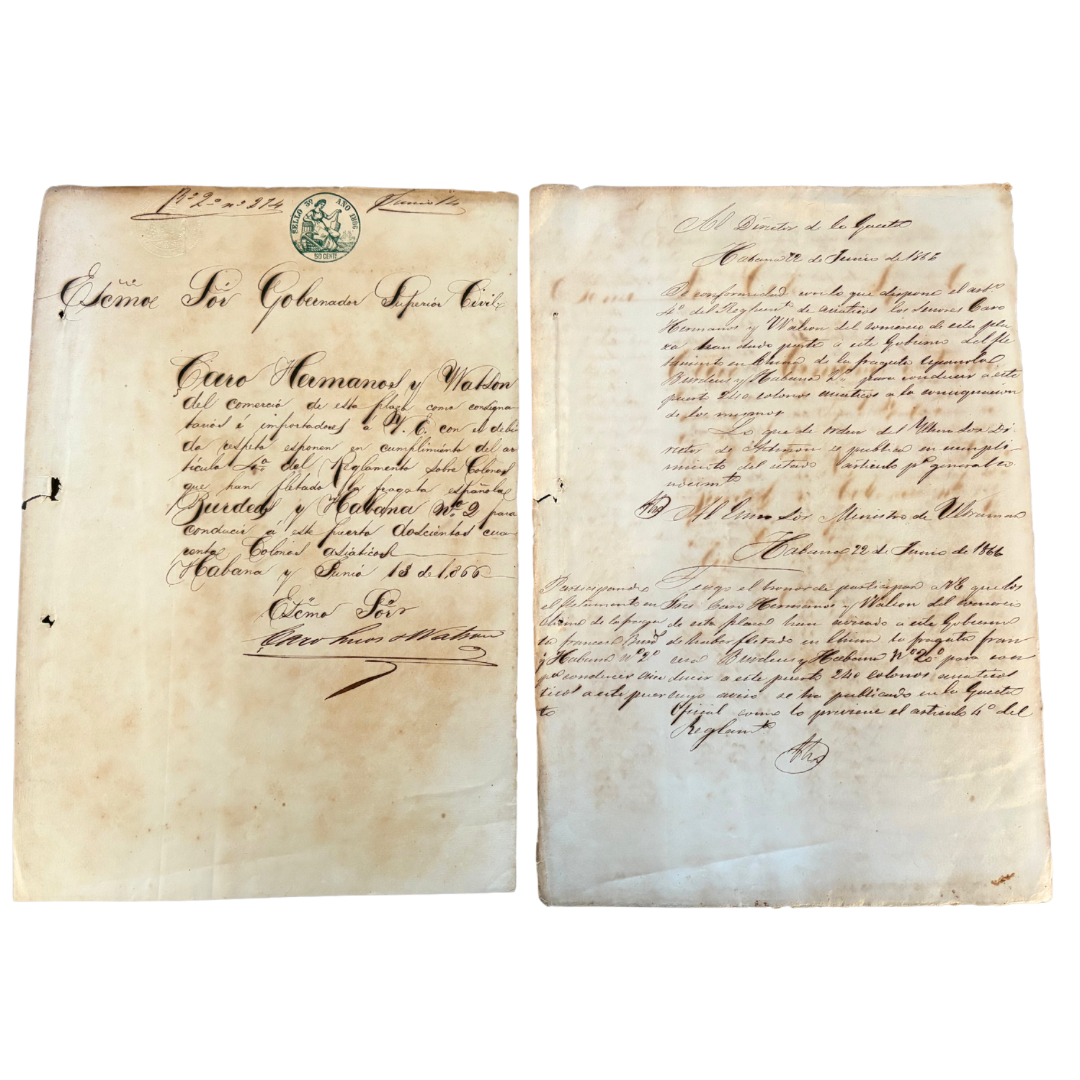 Rº 2º nº 274
Junio 14
SELLO 9º AÑO 1866
50 CENTS
Escmo Sōr Gobernador Superior Civil
Caro Hermanos y Watson
del comercio de esta plaza como consigna
tarios é importadores a V. E. con el debi
do espeto esponen en cumplimiento del ar
ticulo 4º del Reglamento sobre Colonos
que han fletado la fragata española
Burdeos y Habana Nº 2 para
conducir á este puerto doscientos cua
renta Colonos asiáticos
Habana y Junio 13 de 1,866
Escmo Sōr
Caro Hnos & Watson
Al Director de la Gaceta
Habana 22 de Junio de 1866
De conformidad con lo que dispone el artº
4º del Reglamto de asiaticos los señores Caro
Hermanos y Watson del comercio de esta pla
za han dado parte á este Gobierno del fle
tamento en China de la fragata española
Burdeos y Habana 2º para conducir a este
puerto 240 colonos asiaticos a la consignacion
de los mismos
Lo que de orden del Di
rector de se publica en cumpli
miento del citado articulo pª general co
nocimto
Al Escmo Sor Ministro de Ultramar
Habana 22 de Junio de 1866
Participando
el fletamento en
China de la fraga
ta francesa Burds
y Habana nº 2º
pª conducir asia
ticos a este puer
to
Tengo el honor de participar a VE que los
Sres Caro Hermanos y Watson del comercio
de esta plaza han avisado a este Gobierno
de haber fletado en China la fragata fran
cesa Burdeos y Habana Nº 2º para con
ducir a este puerto 240 colonos asiaticos
cuyo aviso se ha publicado en la Gaceta
Oficial como lo previene el articulo 4º del
Reglamto